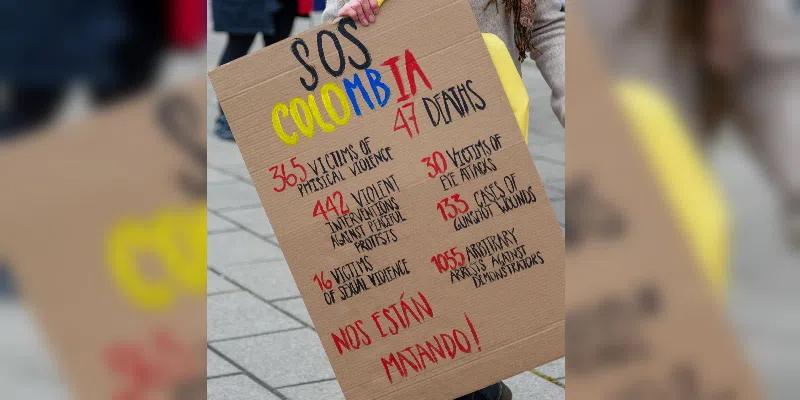 SOS
COLOMBIA
47 DEATHS
365 VICTIMS OF
PHYSICAL VIOLENCE
442 VIOLENT
INTERVENTIONS
AGAINST PEACEFUL
PROTESTS
16 VICTIMS
OF SEXUAL VIOLENCE
30 VICTIMS OF
EYE ATTACKS
133 CASES OF
GUNSHOT WOUNDS
1055 ARBITRARY
ARRESTS AGAINST
DEMONSTRATORS
NOS ESTÁN
MATANDO!